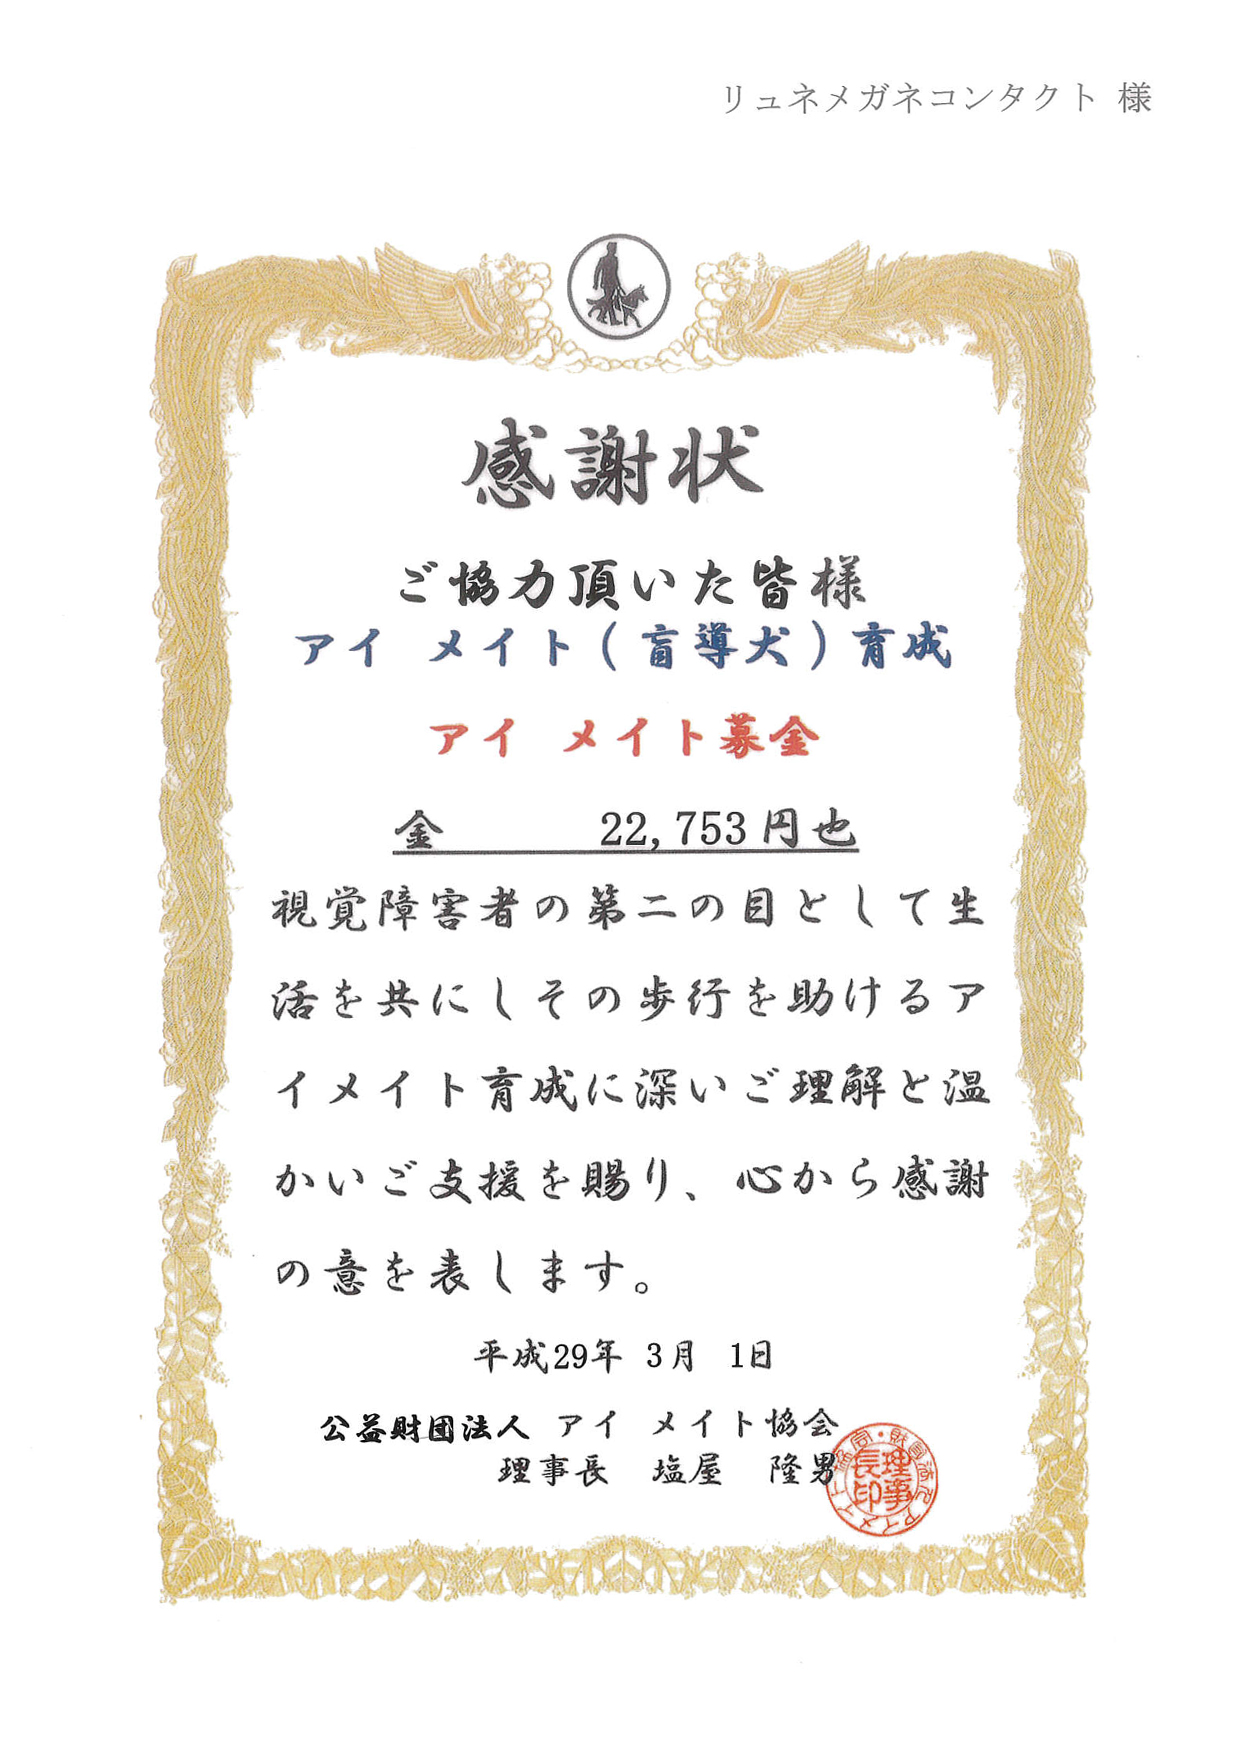 リュネメガネコンタクト 様
感謝状
ご協力頂いた皆様
アイ メイト(盲導犬)育成
アイ メイト募金
金 22,753円也
視覚障害者の第二の目として生
活を共にしその歩行を助けるア
イメイト育成に深いご理解と温
かいご支援を賜り、心から感謝
の意を表します。
平成29年 3月 1日
公益財団法人 アイ メイト協会
理事長 塩屋 隆男
理事長印